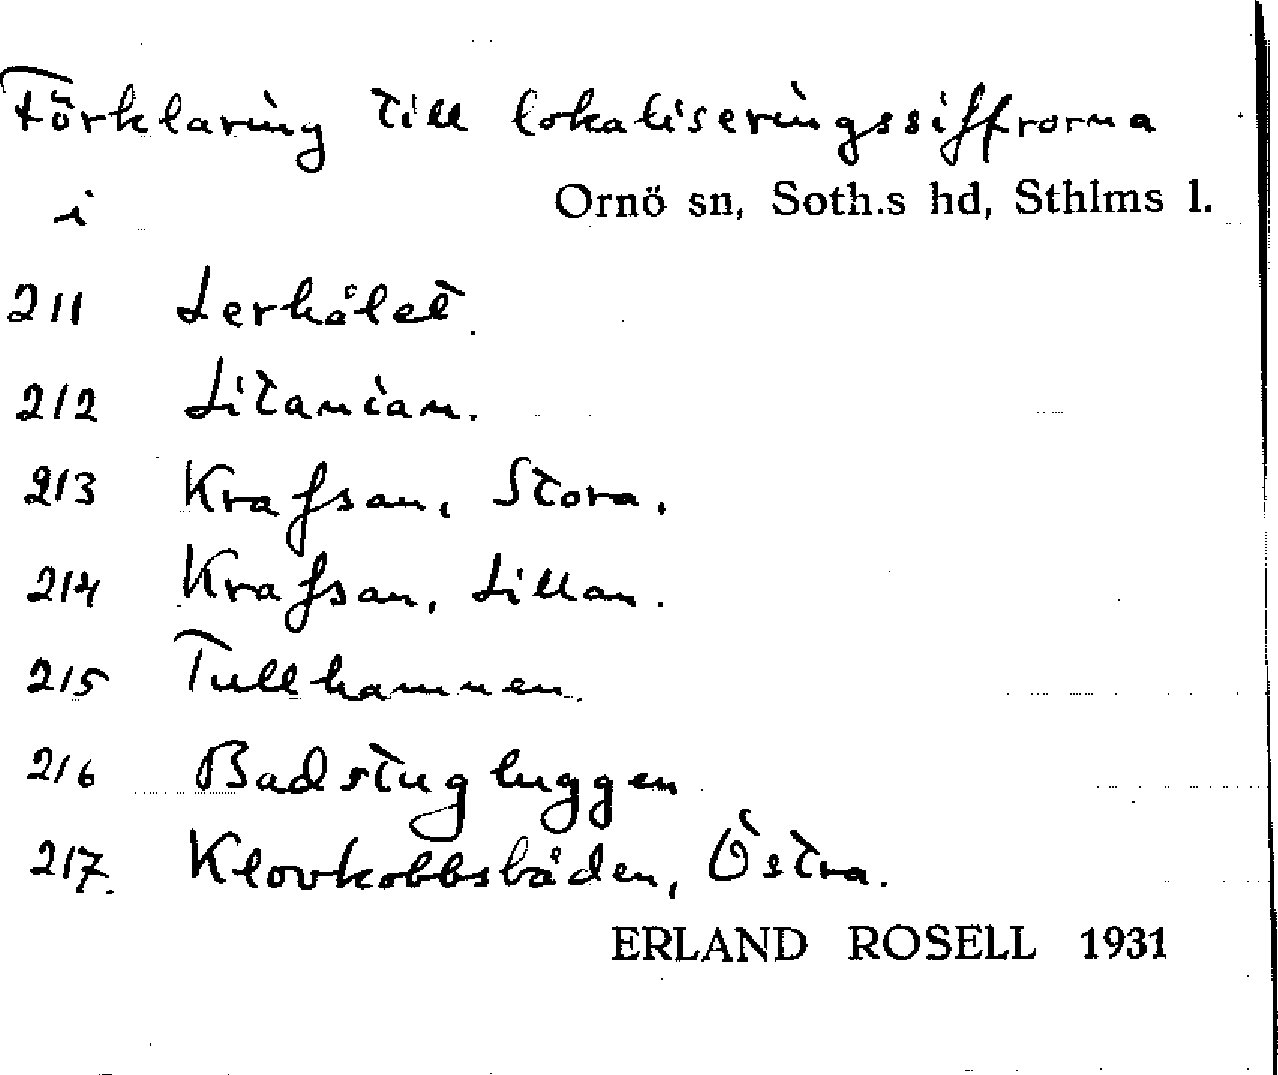 Förklaring till lokaliseringssiffrorna
i Ornö sn, Soth.s hd, Sthlms l.
211 Lerhålet.
212 Litanian.
213 Krafsan, Stora.
214 Krafsan, Lillan.
215 Tullhamnen.
216 Badstugluggen
217. Klovkobbsbåden, Östra.
ERLAND ROSELL 1931